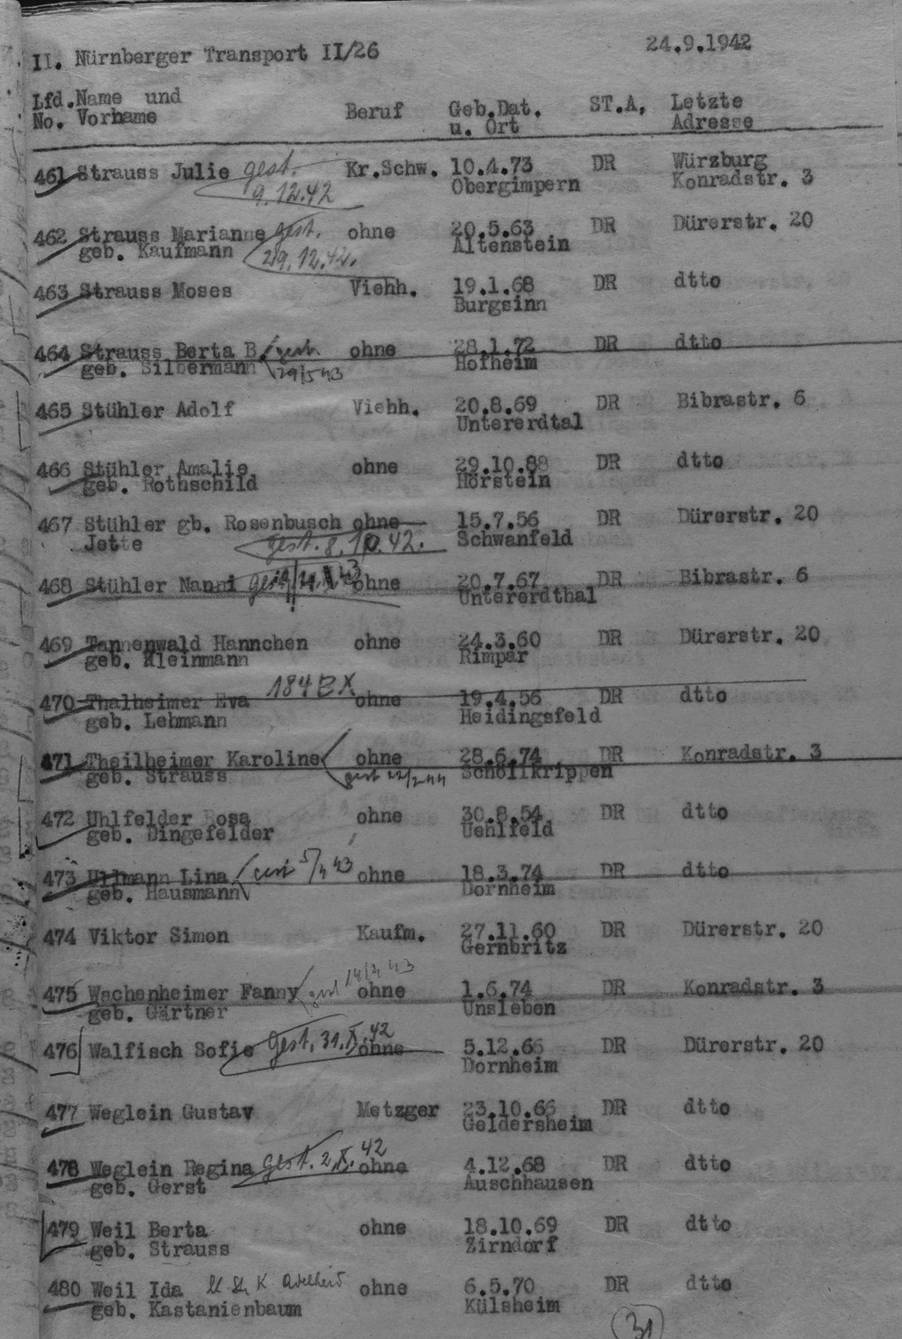 II. Nürnberger Transport II/26 24.9.1942
Lfd. Name und Beruf Geb.Dat. ST.A. Letzte
No. Vorname u. Ort Adresse
461 Strauss Julie gest. Kr.Schw. 10.4.73 DR Würzburg
9.12.42 Obergimpern Konradstr. 3
462 Strauss Marianne gest. ohne 20.5.63 DR Dürerstr. 20
geb. Kaufmann 29.12.42. Altenstein
463 Strauss Moses Viehh. 19.1.68 DR dtto
Burgsinn
464 Strauss Berta B. gest. ohne 28.1.72 DR dtto
geb. Silbermann 29/5 43 Hofheim
465 Stühler Adolf Viehh. 20.8.69 DR Bibrastr. 6
Untererdtal
466 Stühler Amalie ohne 29.10.88 DR dtto
geb. Rothschild Hörstein
467 Stühler gb. Rosenbusch ohne 15.7.56 DR Dürerstr. 20
Jette gest. 8.10.42. Schwanfeld
468 Stühler Nanni 43 ohne 20.7.67 DR Bibrastr. 6
Untererdthal
469 Tannenwald Hannchen ohne 24.3.60 DR Dürerstr. 20
geb. Kleinmann Rimpar
470 Thalheimer Eva 184 BX ohne 19.4.56 DR dtto
geb. Lehmann Heidingsfeld
471 Theilheimer Karoline ohne 28.6.74 DR Konradstr. 3
geb. Strauss gest 22/2 44 Schöllkrippen
472 Uhlfelder Rosa ohne 30.8.54 DR dtto
geb. Dingefelder Uehlfeld
473 Ullmann Lina 43 ohne 18.3.74 DR dtto
geb. Hausmann Dornheim
474 Viktor Simon Kaufm. 27.11.60 DR Dürerstr. 20
Gernbritz
475 Wachenheimer Fanny 43 ohne 1.6.74 DR Konradstr. 3
geb. Gärtner Unsleben
476 Walfisch Sofie gest. 31.X.42 ohne 5.12.66 DR Dürerstr. 20
Dornheim
477 Weglein Gustav Metzger 23.10.66 DR dtto
Geldersheim
478 Weglein Regina gest. 2.X.42 ohne 4.12.68 DR dtto
geb. Gerst Auschhausen
479 Weil Berta ohne 18.10.69 DR dtto
geb. Strauss Zirndorf
480 Weil Ida ohne 6.5.70 DR dtto
geb. Kastanienbaum Külsheim
31